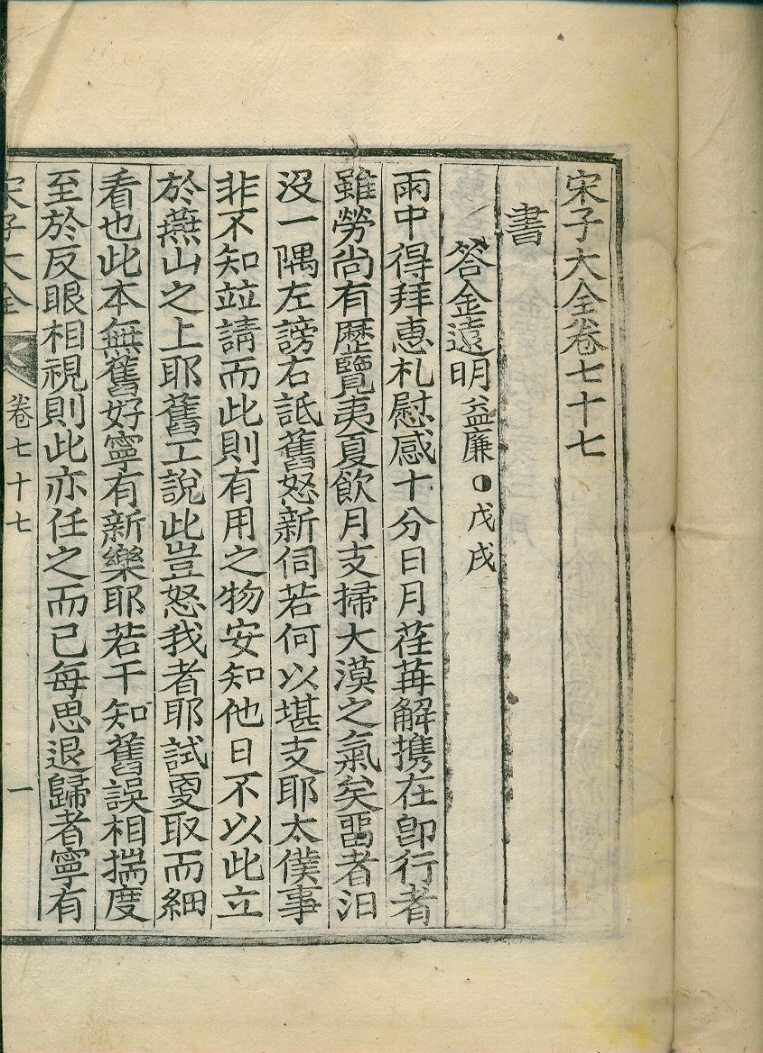 宋子大全卷七十七
書
答金遠明益廉●戊戌
雨中得拜惠札慰感十分日月荏苒解携在卽行者
雖勞尙有歷覽夷夏飮月支掃大漠之氣矣畱者汨
沒一隅左謗右詆舊怒新伺若何以堪支耶太僕事
非不知竝請而此則有用之物安知他日不以此立
於燕山之上耶舊工說此豈怒我者耶試更取而細
看也此本無舊好寧有新樂耶若干知舊誤相揣度
至於反眼相視則此亦任之而已每思退歸者寧有
宋子大全 卷七十七 一